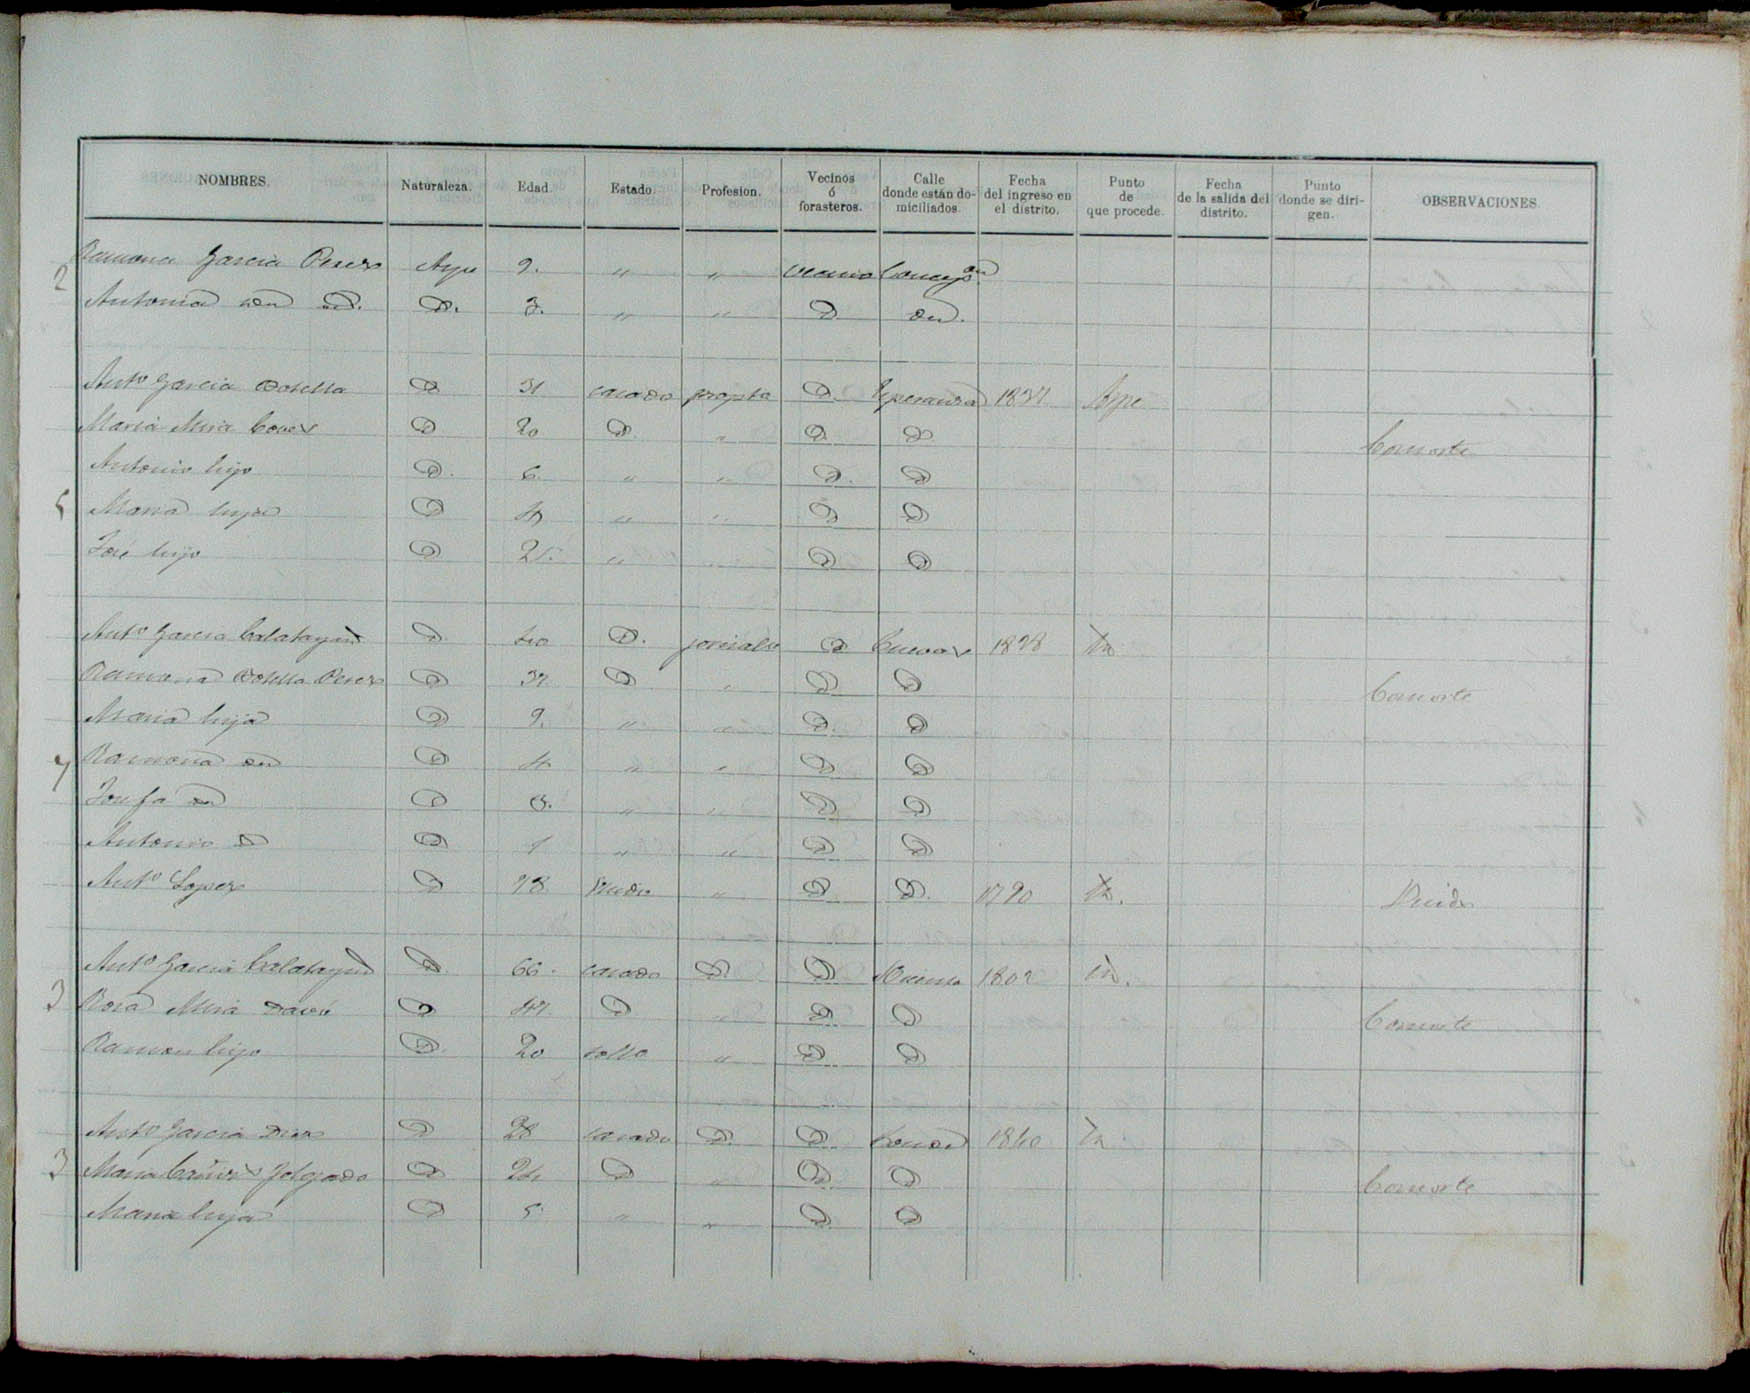 NOMBRES. Naturaleza. Edad. Estado. Profesion. Vecinos ó forasteros. Calle donde están domiciliados. Fecha del ingreso en el distrito. Punto de que procede. Fecha de la salida del distrito. Punto donde se dirigen. OBSERVACIONES
2 Ramona Garcia Perez Aspe 9. " " vecino Concepon
Antonia D. 3. " " D
Anto Garcia Botella D 31 casado propto D. Esperanza 1837 Aspe
Maria Mira D 20 D. " D D Consorte
Antonio hijo D. 6. " " D. D
5 Maria hija D 4 " " D D
José hijo D " " D D
Anto Garcia Calatayud D 40 D. jornalo D Cuevas 1828 Yn
Ramona Botella Perez D 37 D " D D Consorte
Maria hija D 9. " " D. D
7 Ramona D 4 " " D D
Josefa D 3. " " D D
Antonio D D 1 " " D D
Anto Lopez D 78 Viudo " D D. 1790 Yn. Viudo
Anto Garcia Calatayud D. 66. casado D. D 1802 Yn.
3 Rosa Mira D 47 D " D D Consorte
Ramon hijo D. 20 solto " D D
Anto Garcia D 28 casado D. D 1840 Yn
3 Maria D 24 D " D. D Consorte
Maria hija D 5 " " D. D